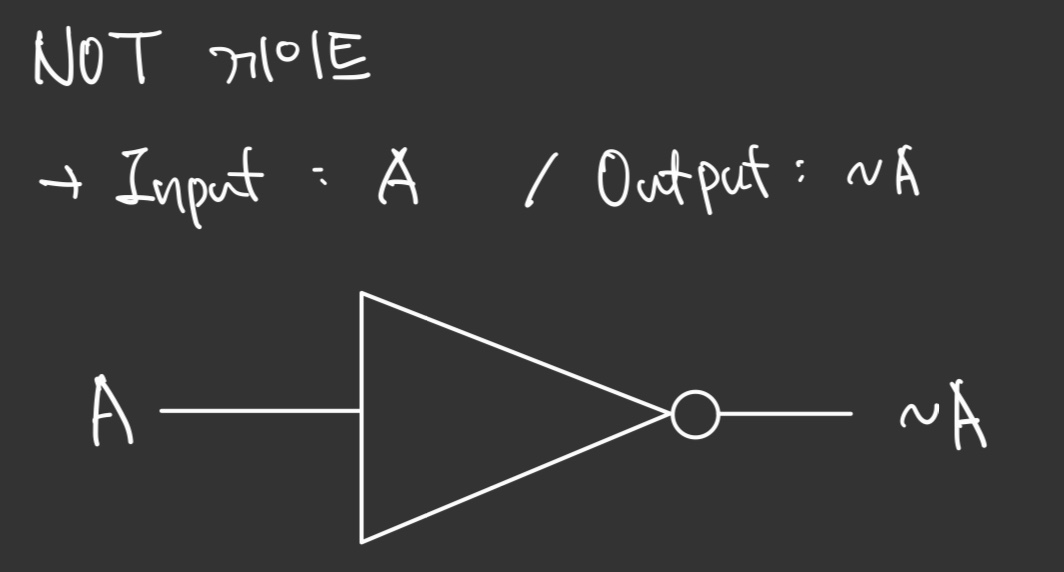 NOT 게이트
→ Input : A / Output : ~A
A ~A